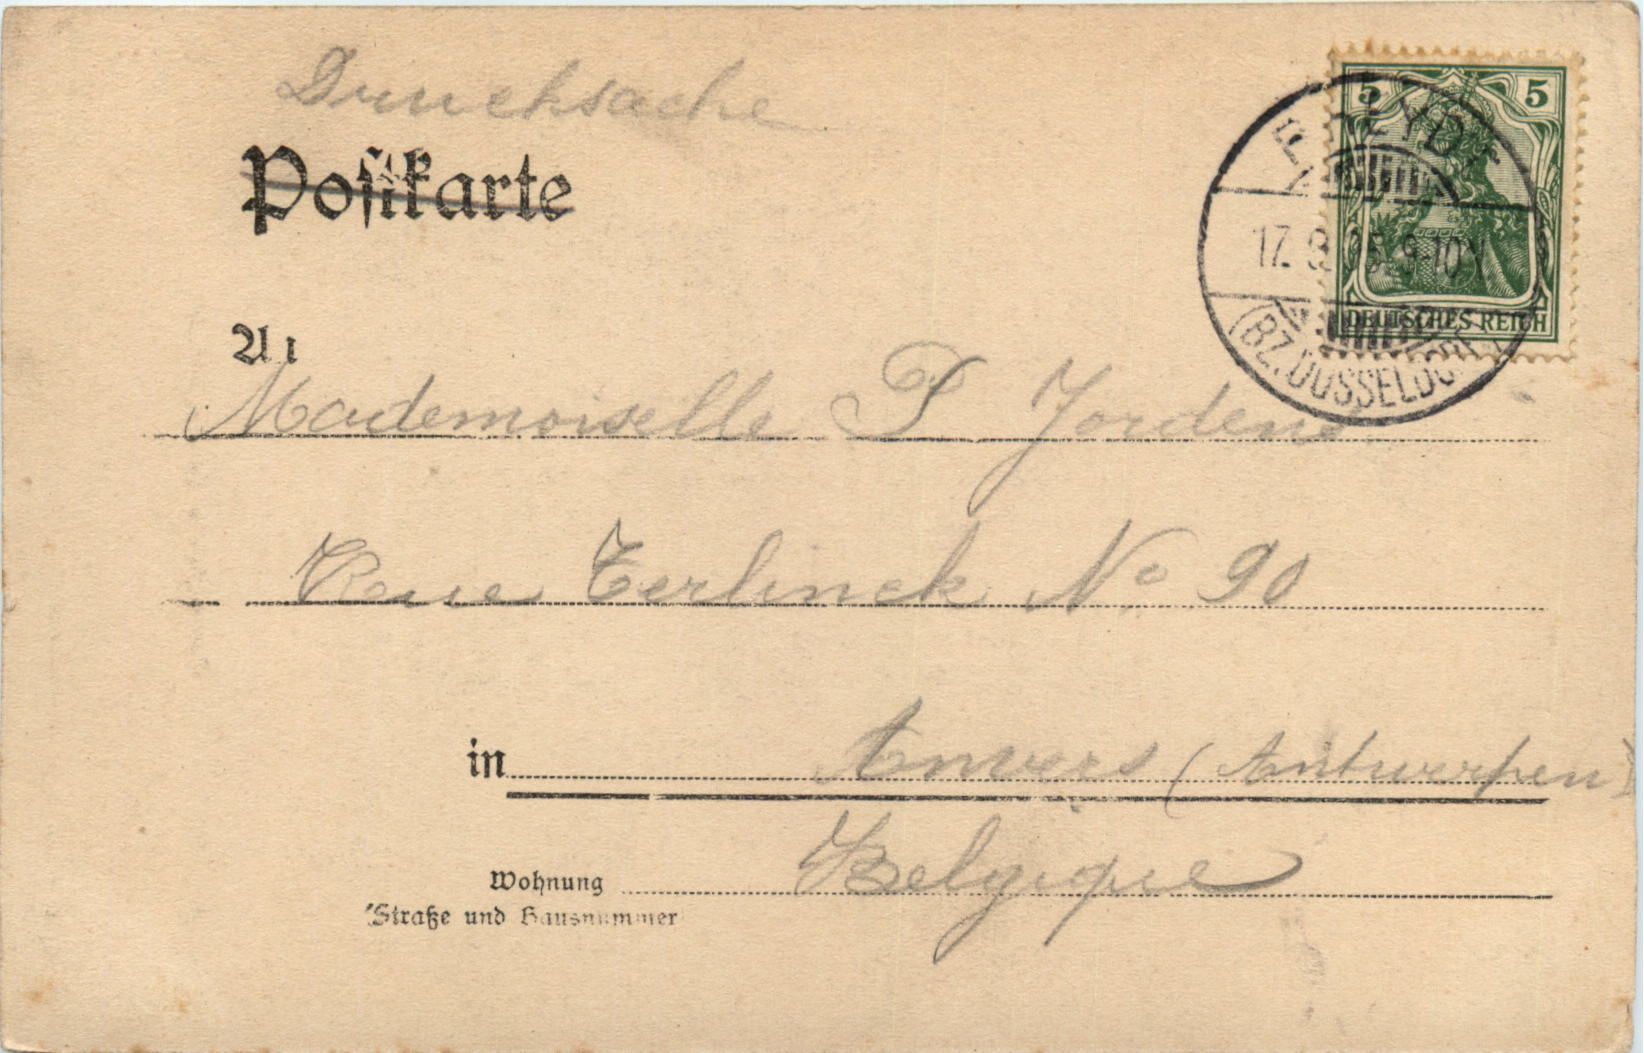 Drucksache
Postkarte
5 5
RHEYDT
17. 9. 05. 9-10V
DEUTSCHES REICH
(BZ. DÜSSELDORF)
An
Mademoiselle P Jordens
Rue Terlinck No 90
in Anvers (Antwerpen)
Belgique
Wohnung
(Straße und Hausnummer)